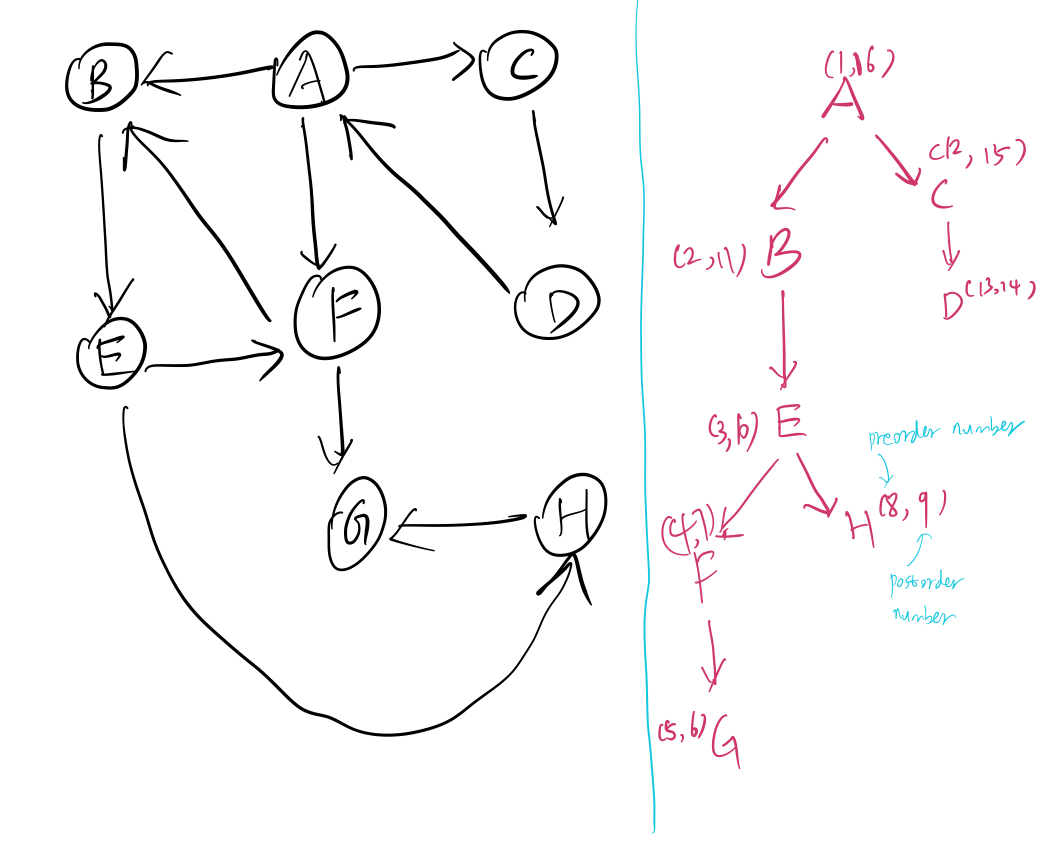 B
A
C
E
F
D
G
H
(1,16)
A
C(2, 15)
C
(2,11) B
D (13,14)
(3,10) E
preorder number
(4,7)
F
H (8, 9)
postorder
number
(5,6) G